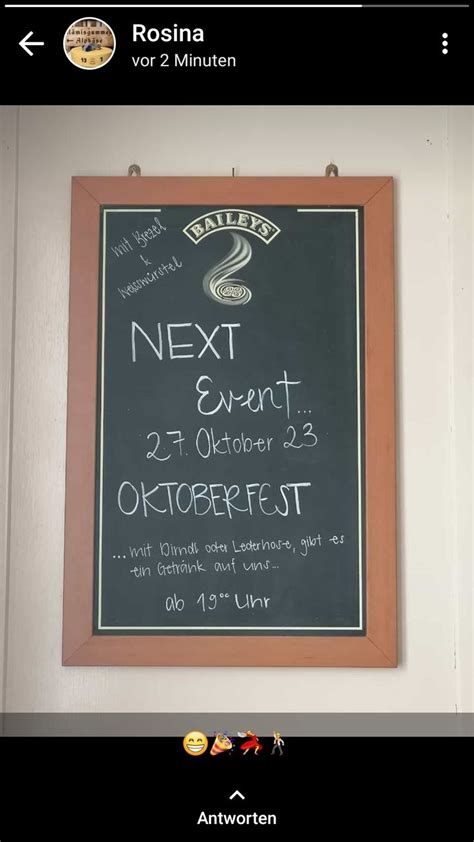 Rosina
vor 2 Minuten
BAILEYS
mit Brezel
&
Weisswürstel
NEXT
Event...
27. Oktober 23
OKTOBERFEST
...mit Dirndl oder Lederhose, gibt es
ein Getränk auf uns...
ab 19°° Uhr
Antworten